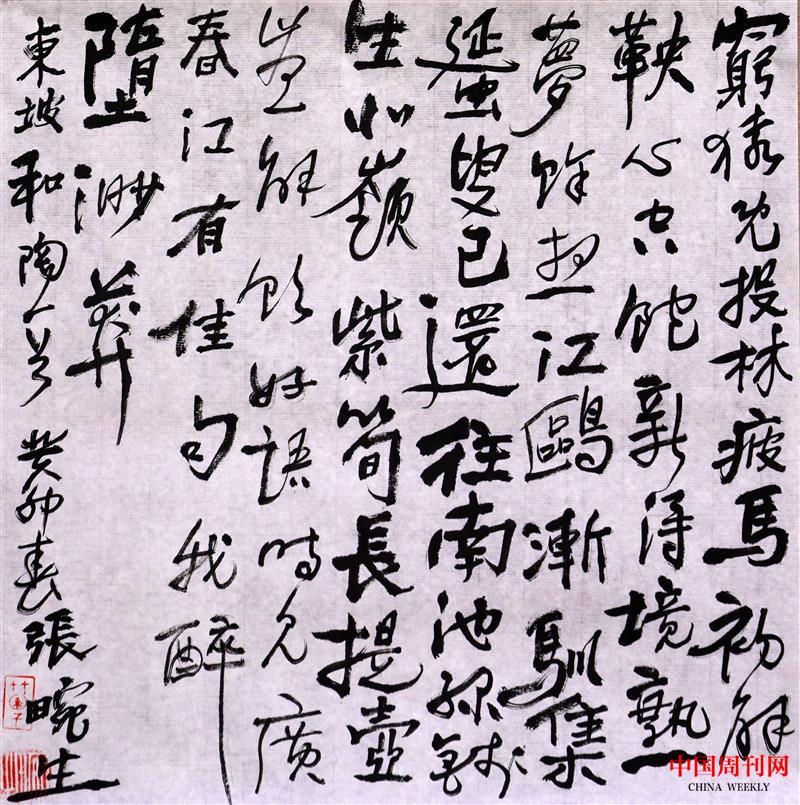 窮猿既投林疲馬初解
鞅心空飽新得境熟
夢餘想江鷗漸馴集
蜑叟已還往南池綠錢
生北嶺紫筍長提壺
豈解飲好語時見廣
春江有佳句我醉
墮渺莽
東坡和陶一首 癸卯春張畹生
中国周刊网
CHINA WEEKLY